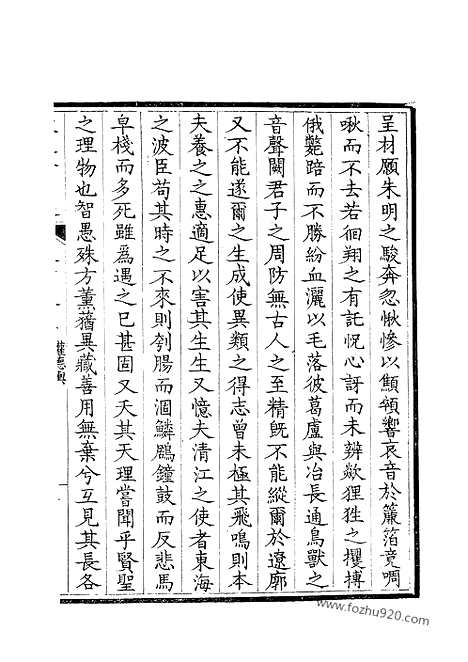 呈材願朱明之駿奔忽愀慘以顦顇響哀音於簾箔竟啁
啾而不去若徊翔之有託怳心訝而未辨欻狸狌之攫搏
俄斃踣而不勝紛血灑以毛落彼葛盧與冶長通鳥獸之
音聲闕君子之周防無古人之至精旣不能縱爾於遼廓
又不能遂爾之生成使異類之得志曾未極其飛鳴則本
夫養之之惠適足以害其生生又憶夫清江之使者東海
之波臣苟其時之不來則刳腸而涸鱗鷗鐘鼓而反悲馬
皁棧而多死雖爲遇之已甚固又夭其天理嘗聞乎賢聖
之理物也智愚殊方薰蕕異藏善用無棄兮互見其長各
權德輿
www.fozhu920.com